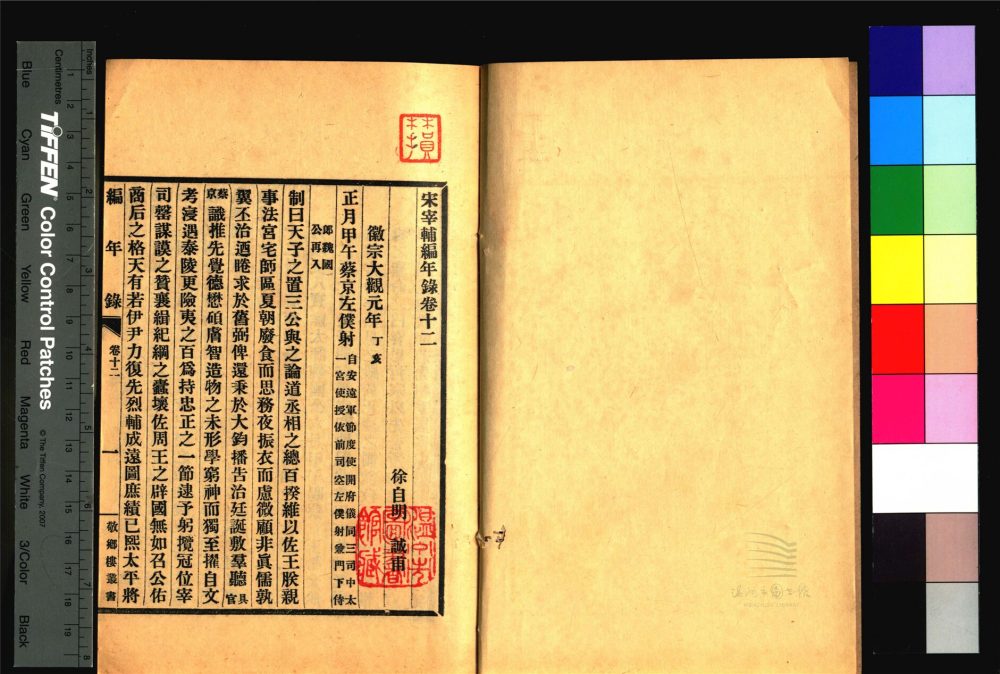 宋宰輔編年錄卷十二
徐自明 誠甫
徽宗大觀元年 丁亥
正月甲午蔡京左僕射 自安遠軍節度使開府儀同三司中太
一宮使授依前司空左僕射兼門下侍
郎魏國
公再入
制曰天子之置三公與之論道丞相之總百揆維以佐王朕親
事法宮宅師區夏朝廢食而思務夜振衣而慮微顧非眞儒孰
翼丕治迺睠求於舊弼俾還秉於大鈞播告治廷誕敷羣聽 具官
蔡京 識推先覺德懋碩膚智造物之未形學窮神而獨至擢自文
考寖遇泰陵更險夷之百爲持忠正之一節逮予躬攬冠位宰
司罄謀謨之贊襄緝紀綱之蠹壞佐周王之辟國無如召公佑
商后之格天有若伊尹力復先烈輔成遠圖庶績已熙太平將
編年錄 卷十二 一 敬鄉樓叢書
Inches
Centimetres
TIFFEN Color Control Patches
© The Tiffen Company, 2007
Blue
Cyan
Green
Yellow
Red
Magenta
White
3/Color
Black